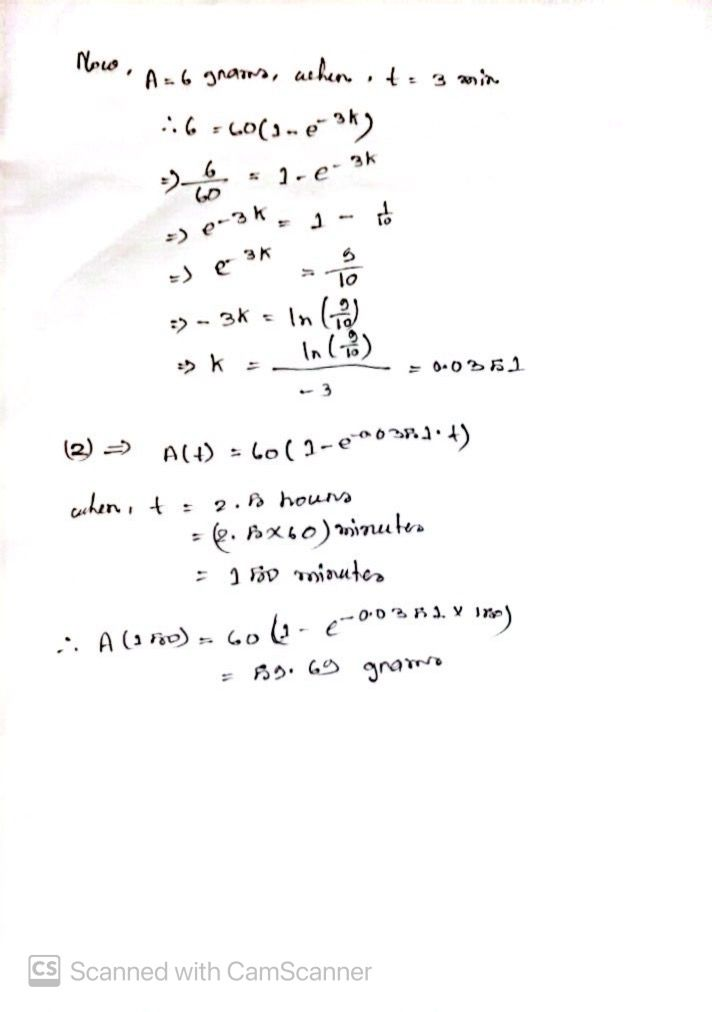 Now, A = 6 grams, when, t = 3 min
∴ 6 = 60(1 - e^{-3k})
=> 6/60 = 1 - e^{-3k}
=> e^{-3k} = 1 - 1/10
=> e^{-3k} = 9/10
=> -3k = ln(9/10)
=> k = ln(9/10)/-3 = 0.0351
(2) => A(t) = 60(1 - e^{-0.0351.t})
when, t = 2.5 hours
= (2.5×60) minutes
= 150 minutes
∴ A(150) = 60(1 - e^{-0.0351 × 150})
= 59.69 grams
CS Scanned with CamScanner